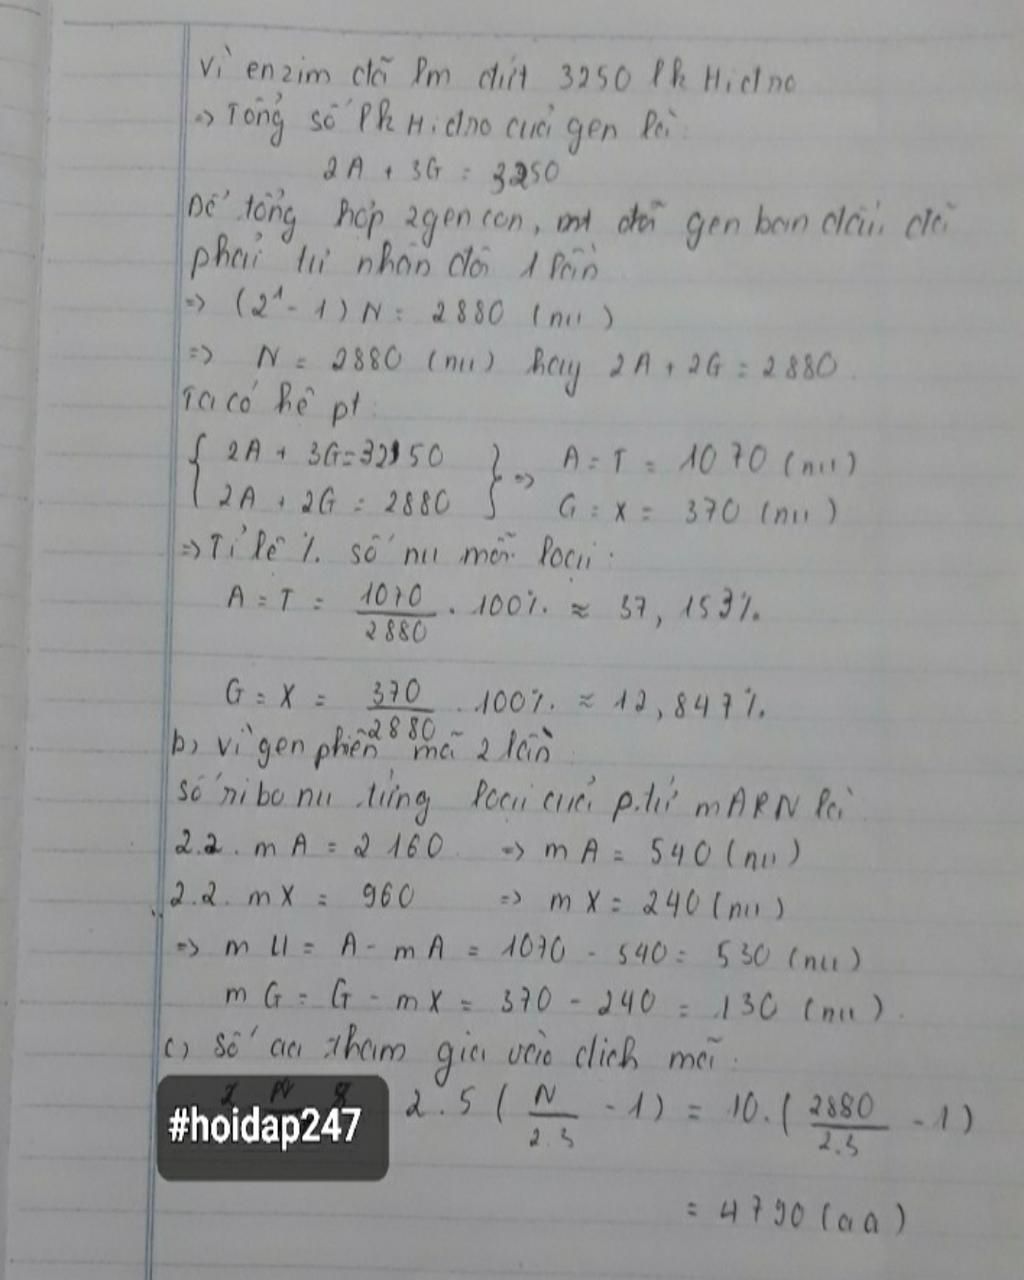 Vì enzim đã làm đứt 3250 lk Hidro
=> Tổng số lk Hidro của gen là:
2A + 3G = 3250
Để tổng hợp 2 gen con, đã gen ban đầu đã
phải tự nhân đôi 1 lần
=> (2¹ - 1) N = 2880 (nu)
=> N = 2880 (nu) hay 2A + 2G = 2880.
Ta có hệ pt:
{ 2A + 3G = 3250 } => A = T = 1070 (nu)
{ 2A + 2G = 2880 } G = X = 370 (nu)
=> Tỉ lệ % số nu mỗi loại:
A = T = 1070/2880 . 100% ≈ 37,153%.
G = X = 370/2880 . 100% ≈ 12,847%.
b, vì gen phiên mã 2 lần
số ribonu từng loại của p.tử mARN là
2.2. mA = 2160 => mA = 540 (nu)
2.2. mX = 960 => mX = 240 (nu)
=> mU = A - mA = 1070 - 540 = 530 (nu)
mG = G - mX = 370 - 240 = 130 (nu).
c, Số aa tham gia vào dịch mã:
#hoidap247 2.5 (N/2.3 - 1) = 10.(2880/2.3 - 1)
= 4790 (aa)